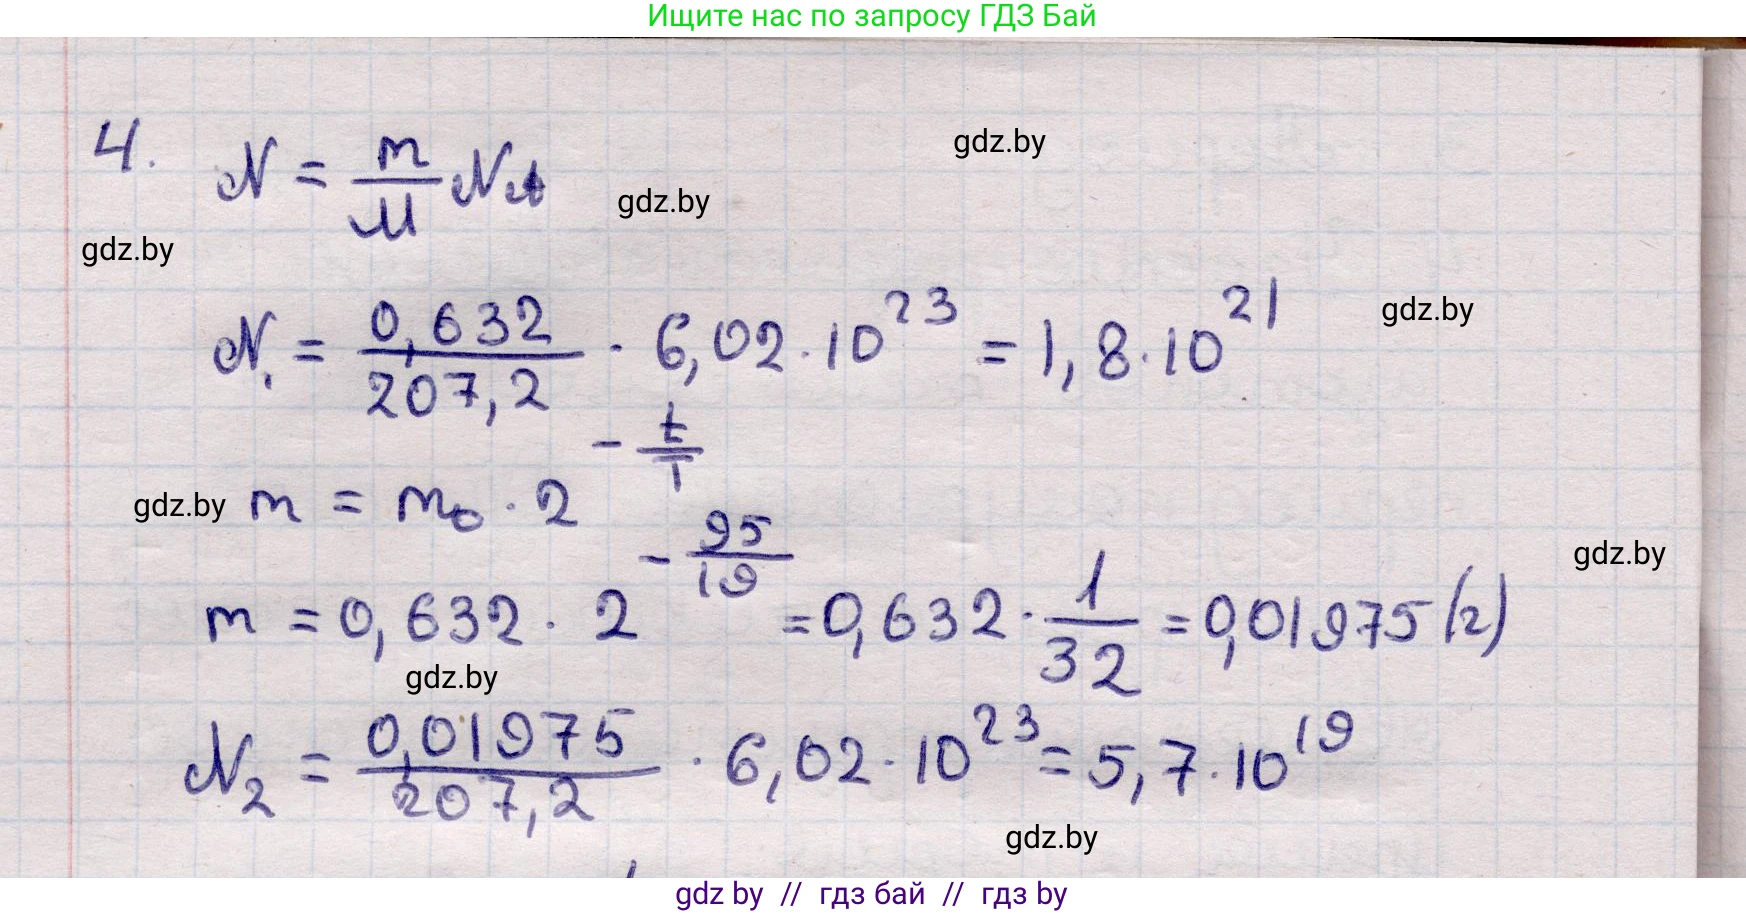 Ищите нас по запросу ГДЗ Бай
4. N = m/M N_A
gdz.by
gdz.by
gdz.by
N₁ = 0,632/207,2 · 6,02 · 10²³ = 1,8 · 10²¹
gdz.by
m = m₀ · 2^(-t/T)
gdz.by
m = 0,632 · 2^(-95/19) = 0,632 · 1/32 = 0,01975 (г)
gdz.by
gdz.by
N₂ = 0,01975/207,2 · 6,02 · 10²³ = 5,7 · 10¹⁹
gdz.by
gdz by // гдз бай // гдз by